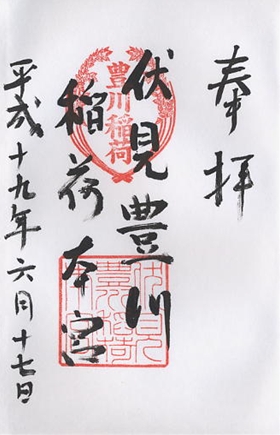 奉拝
伏見豊川
稲荷本宮
平成十九年六月十七日
豊川稲荷